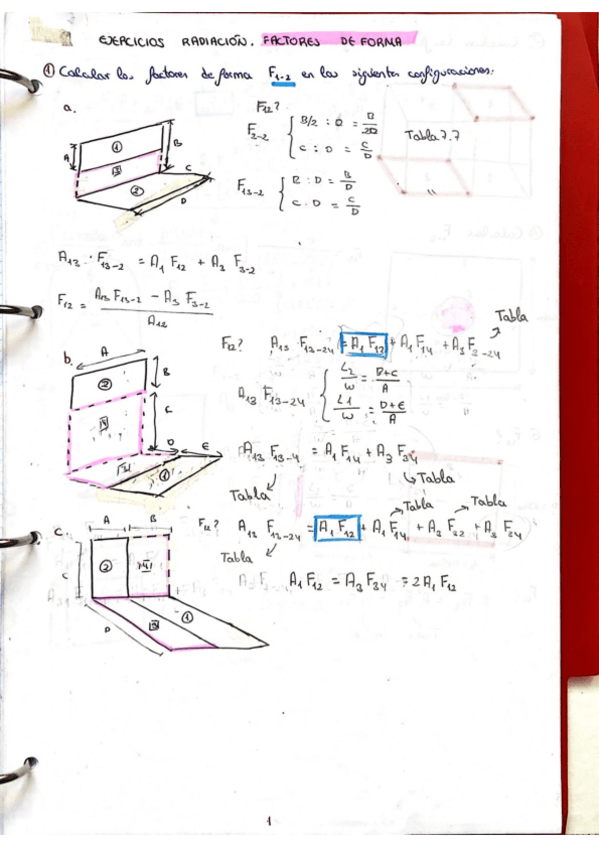 EJERCICIOS RADIACIÓN. FACTORES DE FORMA
① Calcular los factores de forma F1-2 en las siguientes configuraciones:
a.
F12?
F2-2 { B/2 : D = B/2D
C : D = C/D
Tabla 7.7
F13-2 { B : D = B/D
C : D = C/D
A
B
C
D
①
3
②
A13 · F13-2 = A1 F12 + A3 F3-2
F12 = (A13 F13-2 - A3 F3-2) / A12
b.
F12? A13 F13-24 = A1 F12 + A1 F14 + A3 F3-24
Tabla
A13 F13-24 { L2/W = B+C/A
L1/W = D+E/A
A
B
C
D
E
②
①
A13 F13-4 = A1 F14 + A3 F34
Tabla
Tabla
C.
F12? A13 F13-24 = A1 F12 + A1 F14 + A3 F32 + A3 F34
Tabla
Tabla
Tabla
A1 F12 = A3 F34 = 2 A1 F12
A
B
C
D
②
4
3
①
1